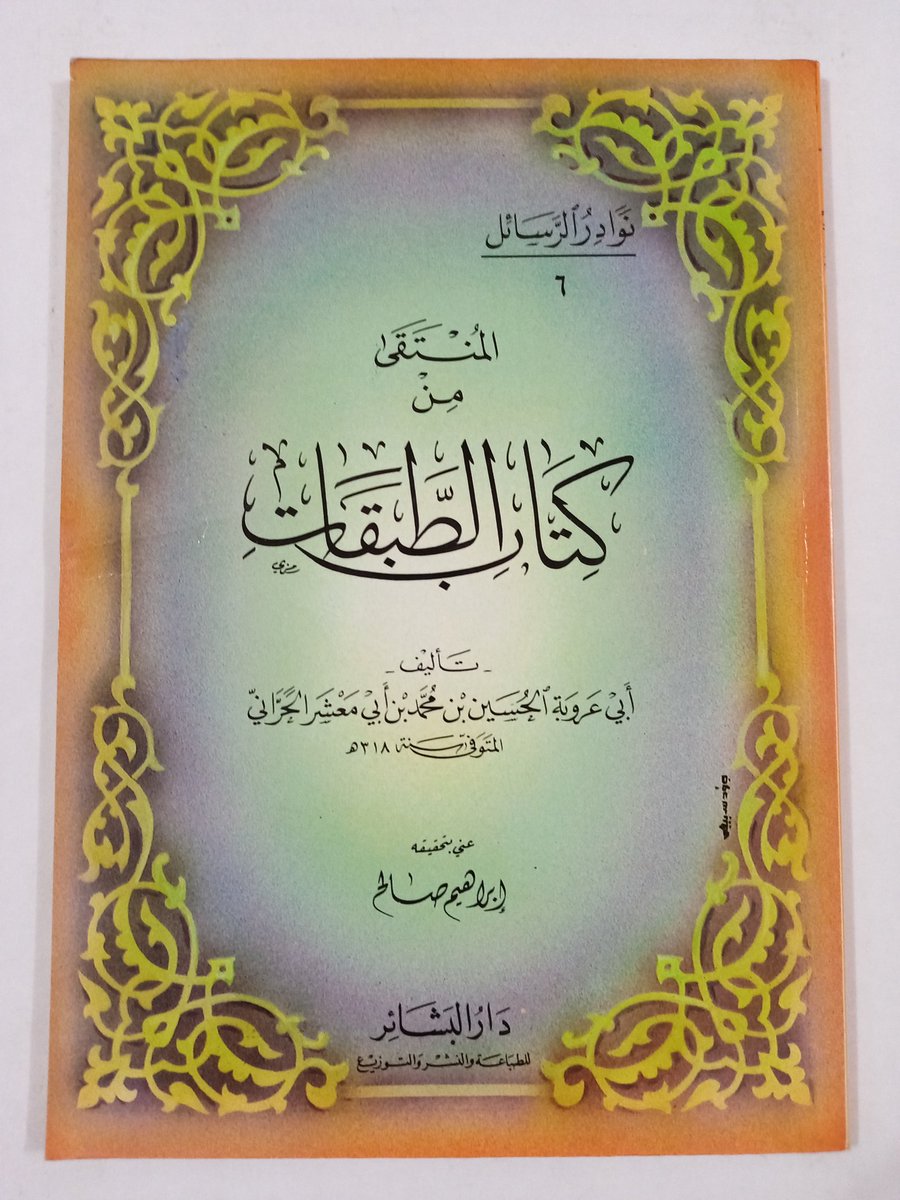 نَوَادِرُ ٱلرَّسَائِل
٦
المُنْتَقَى
مِنْ
كِتَابِ الطَّبَقَاتِ
_ تَأليف _
أَبِي عَرُوبَة ٱلحُسَين بْن مُحَمَّد بْن أَبِي مَعْشَر الحَرَّانِيّ
المتَوَفّى سَنة ٣١٨ هـ
عني بتحقيقه
إبراهيم صَالح
دَارُ البَشَائِر
للطبَاعَة وَالنشْر وَالتَوزيْع